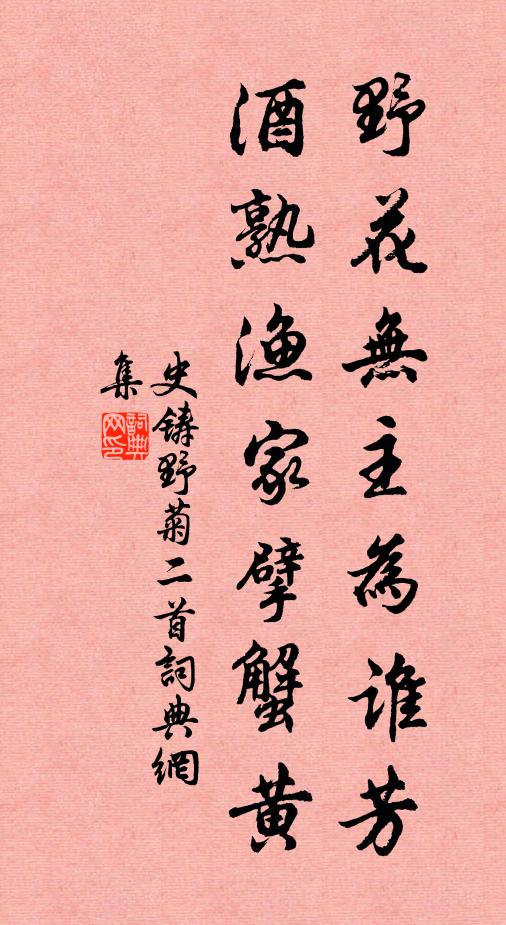 野花無主為誰芳
酒熟漁家擘蟹黃
史鑄野菊二首詞典網
集
詞典網印